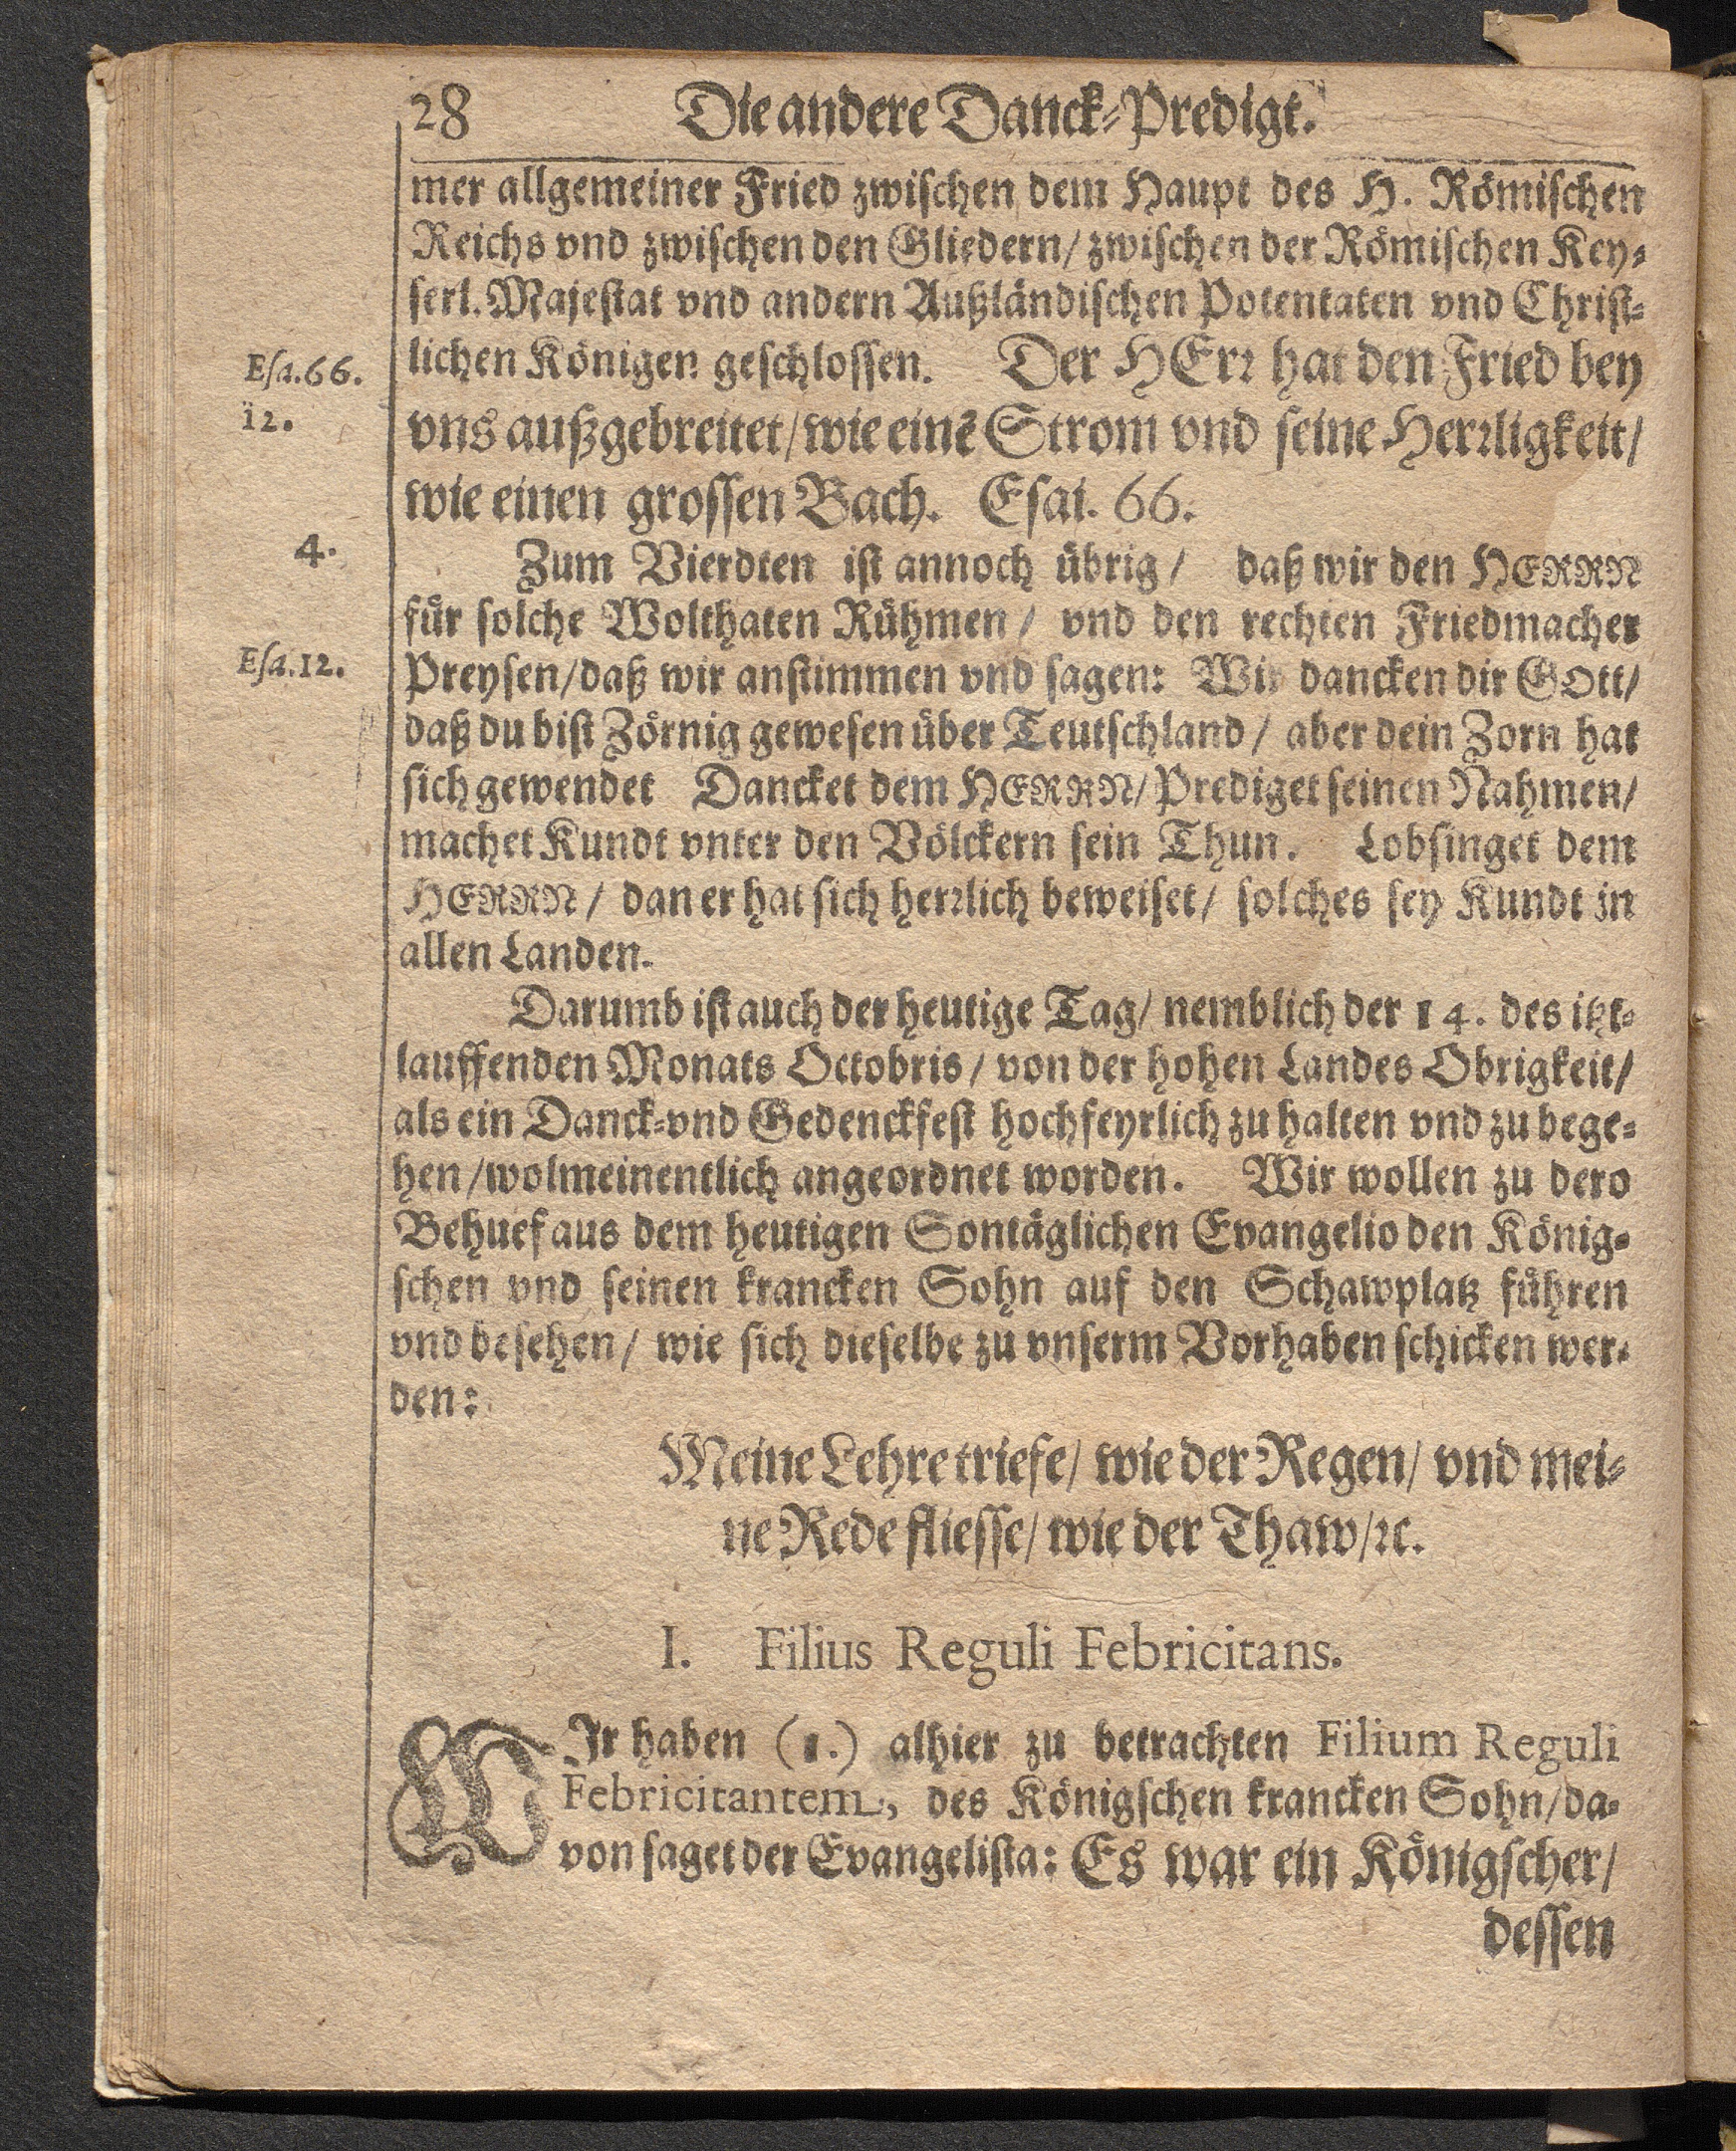 28 Die andere Danck-Predigt.
mer allgemeiner Fried zwischen dem Haupt des H. Römischen
Reichs vnd zwischen den Gliedern/ zwischen der Römischen Key-
serl. Majestat vnd andern Außländischen Potentaten vnd Christ-
Esa.66. lichen Königen geschlossen. Der HErr hat den Fried bey
12. vns außgebreitet/ wie einē Strom vnd seine Herrligkeit/
wie einen grossen Bach. Esai. 66.
4. Zum Vierdten ist annoch übrig/ daß wir den HERRN
für solche Wolthaten Rühmen/ vnd den rechten Friedmacher
Esa.12. Preysen/ daß wir anstimmen vnd sagen: Wir dancken dir GOtt/
daß du bist Zörnig gewesen über Teutschland/ aber dein Zorn hat
sich gewendet Dancket dem HERRN/ Prediget seinen Nahmen/
machet Kundt vnter den Völckern sein Thun. Lobsinget dem
HERRN/ dan er hat sich herrlich beweiset/ solches sey Kundt in
allen Landen.
Darumb ist auch der heutige Tag/ nemblich der 14. des itzt-
lauffenden Monats Octobris/ von der hohen Landes Obrigkeit/
als ein Danck-vnd Gedenckfest hochfeyrlich zu halten vnd zu bege-
hen/ wolmeinentlich angeordnet worden. Wir wollen zu dero
Behuef aus dem heutigen Sontäglichen Evangelio den König-
schen vnd seinen krancken Sohn auf den Schawplatz führen
vnd besehen/ wie sich dieselbe zu vnserm Vorhaben schicken wer-
den:
Meine Lehre triefe/ wie der Regen/ vnd mei-
ne Rede fliesse/ wie der Thaw/ ꝛc.
I. Filius Reguli Febricitans.
WIr haben (1.) alhier zu betrachten Filium Reguli
Febricitantem, des Königschen krancken Sohn/ da-
von saget der Evangelista: Es war ein Königscher/
dessen